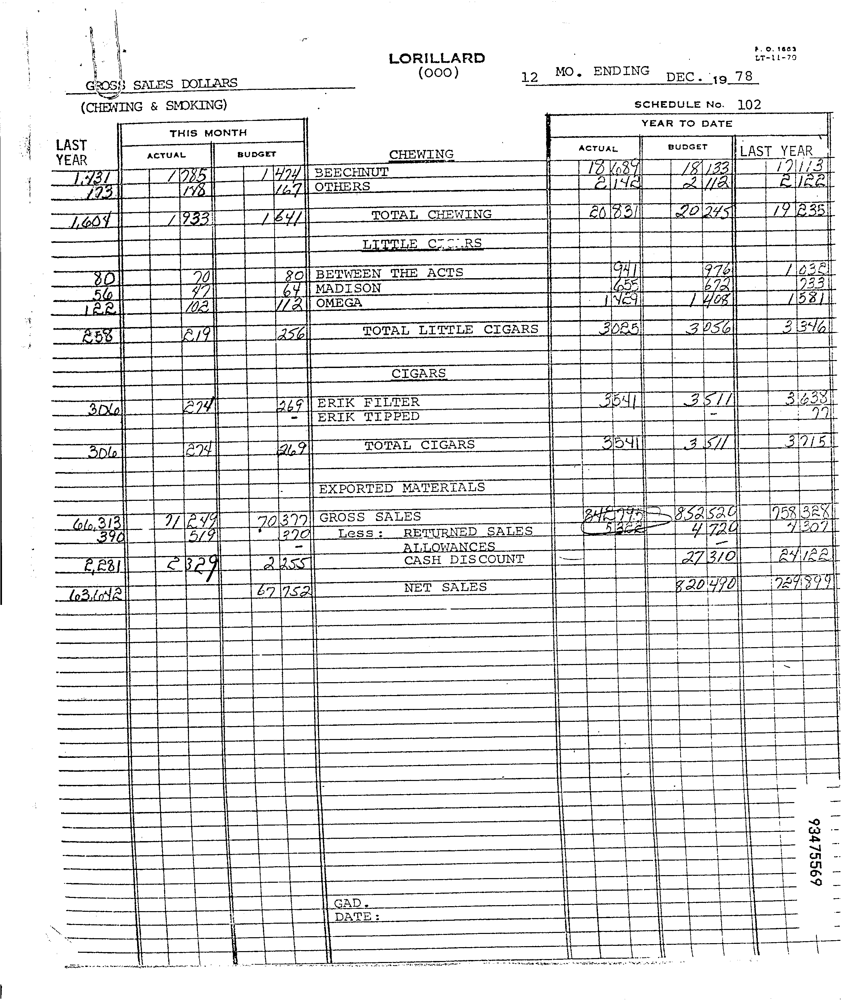 F. O. 1663
LT-11-70
LORILLARD
(000)
12 MO. ENDING DEC. 19 78
GROSS SALES DOLLARS
(CHEWING & SMOKING)
SCHEDULE No. 102
LAST YEAR THIS MONTH YEAR TO DATE
ACTUAL BUDGET CHEWING ACTUAL BUDGET LAST YEAR
1,431 1 785 1 474 BEECHNUT 18 689 18 133 17 113
173 148 167 OTHERS 2 142 2 112 2 122
1,604 1 933 1 641 TOTAL CHEWING 20 831 20 245 19 235
LITTLE
80 70 80 BETWEEN THE ACTS 941 976 1 032
56 47 64 MADISON 655 672 733
122 102 112 OMEGA 1 429 1 408 1 581
258 219 256 TOTAL LITTLE CIGARS 3025 3 056 3 346
CIGARS
306 274 269 ERIK FILTER 3541 3 511 3 638
- ERIK TIPPED - 77
306 274 269 TOTAL CIGARS 3541 3 511 3 715
EXPORTED MATERIALS
66,313 71 249 70 377 GROSS SALES 852 520 758 328
390 519 370 Less: RETURNED SALES 5 322 4 720 4 307
- ALLOWANCES -
2,281 2 329 2 255 CASH DISCOUNT 27 310 24 122
63,642 67 752 NET SALES 820 490 729 899
93475569
GAD.
DATE: